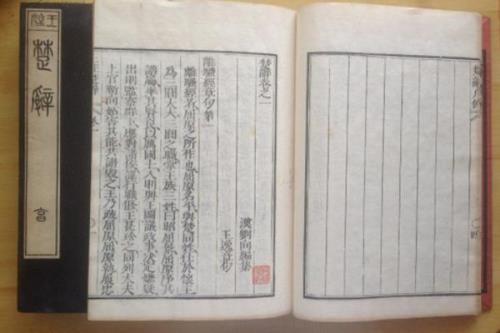 楚辭
楚辭卷之一
漢劉向編集
王逸章句
離騷經章句第一
離騷經者屈原之所作也屈原名平與楚同姓仕於懷王
為三閭大夫三閭之職掌王族三姓曰昭屈景屈原序其
譜屬率其賢良以厲國士入則與王圖議政事決定嫌疑
出則監察群下應對諸侯謀行職修王甚珍之同列大夫
上官靳尚妬害其能共譖毀之王乃疏屈原屈原執履忠